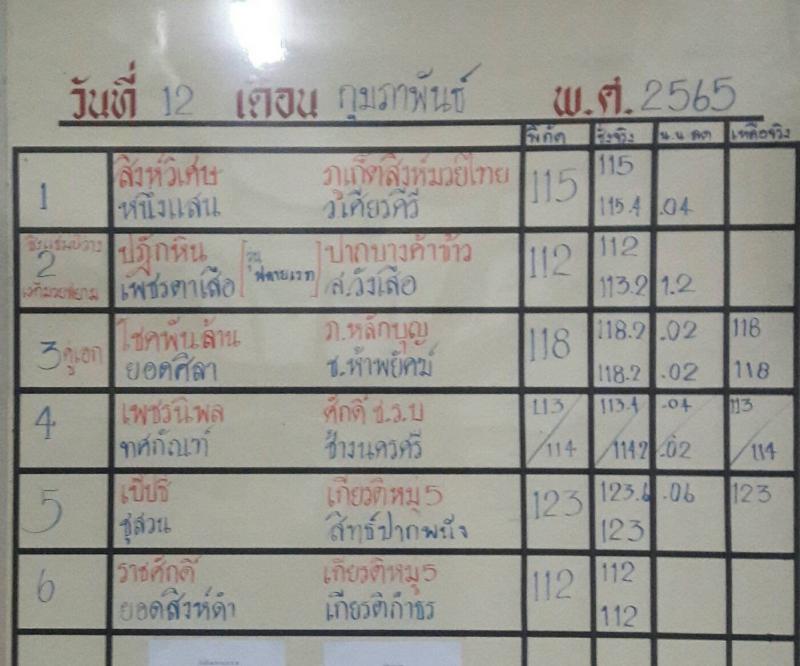 วันที่ 12 เดือน กุมภาพันธ์ พ.ศ. 2565
พิกัด ชั่งจริง น.น ลด เหลือจริง
1 สิงห์วิเศษ ภูเก็ตสิงห์มวยไทย 115 115
หนึ่งแสน ว.เคียรคีรี 115.4 .04
ชิงแชมป์ว่าง
2 ปฏักหิน ปากบางค้าข้าว 112 112
รุ่น ฟลายเวท
เวทีมวยสยาม เพชรตาเสือ ส.วังเสือ 113.2 1.2
3 คู่เอก โชคพันล้าน ภ.หลักบุญ 118 118.2 .02 118
ยอดศิลา ช.ห้าพยัคฆ์ 118.2 .02 118
4 เพชรนิพล ศักดิ์ ช.ร.บ 113 113.4 .04 113
ทศกัณฑ์ ช้างนครศรี 114 114.2 .02 114
5 เป๊ปซี่ เกียรติหมู่5 123 123.6 .06 123
ชูสวน สิทธิ์ปากพนัง 123
6 ราชศักดิ์ เกียรติหมู่5 112 112
ยอดสิงห์ดำ เกียรติกำธร 112